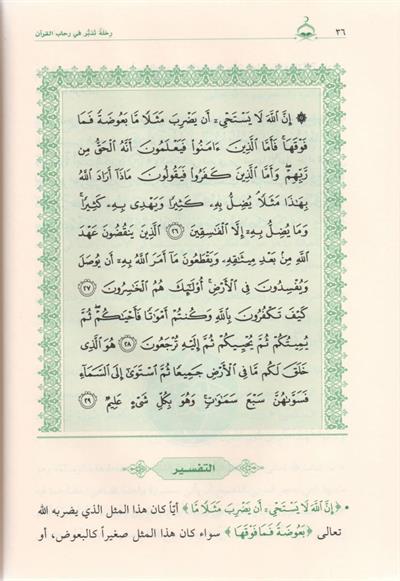 ٣٦
رحلةُ تدبُّر في رحاب القرآن
۞ إِنَّ ٱللَّهَ لَا يَسْتَحْىِۦٓ أَن يَضْرِبَ مَثَلًا مَّا بَعُوضَةً فَمَا
فَوْقَهَا ۚ فَأَمَّا ٱلَّذِينَ ءَامَنُوا۟ فَيَعْلَمُونَ أَنَّهُ ٱلْحَقُّ مِن
رَّبِّهِمْ ۖ وَأَمَّا ٱلَّذِينَ كَفَرُوا۟ فَيَقُولُونَ مَاذَآ أَرَادَ ٱللَّهُ
بِهَٰذَا مَثَلًا ۘ يُضِلُّ بِهِۦ كَثِيرًا وَيَهْدِى بِهِۦ كَثِيرًا ۚ
وَمَا يُضِلُّ بِهِۦٓ إِلَّا ٱلْفَٰسِقِينَ ٢٦ ٱلَّذِينَ يَنقُضُونَ عَهْدَ
ٱللَّهِ مِنۢ بَعْدِ مِيثَٰقِهِۦ وَيَقْطَعُونَ مَآ أَمَرَ ٱللَّهُ بِهِۦٓ أَن يُوصَلَ
وَيُفْسِدُونَ فِى ٱلْأَرْضِ ۚ أُو۟لَٰٓئِكَ هُمُ ٱلْخَٰسِرُونَ ٢٧
كَيْفَ تَكْفُرُونَ بِٱللَّهِ وَكُنتُمْ أَمْوَٰتًا فَأَحْيَٰكُمْ ۖ ثُمَّ
يُمِيتُكُمْ ثُمَّ يُحْيِيكُمْ ثُمَّ إِلَيْهِ تُرْجَعُونَ ٢٨ هُوَ ٱلَّذِى
خَلَقَ لَكُم مَّا فِى ٱلْأَرْضِ جَمِيعًا ثُمَّ ٱسْتَوَىٰٓ إِلَى ٱلسَّمَآءِ
فَسَوَّىٰهُنَّ سَبْعَ سَمَٰوَٰتٍ ۚ وَهُوَ بِكُلِّ شَىْءٍ عَلِيمٌ ٢٩
التفسير
• ﴿إِنَّ ٱللَّهَ لَا يَسْتَحْىِۦٓ أَن يَضْرِبَ مَثَلًا مَّا﴾ أيّاً كان هذا المثل الذي يضربه الله
تعالى ﴿بَعُوضَةً فَمَا فَوْقَهَا﴾ سواء كان هذا المثل صغيراً كالبعوض، أو